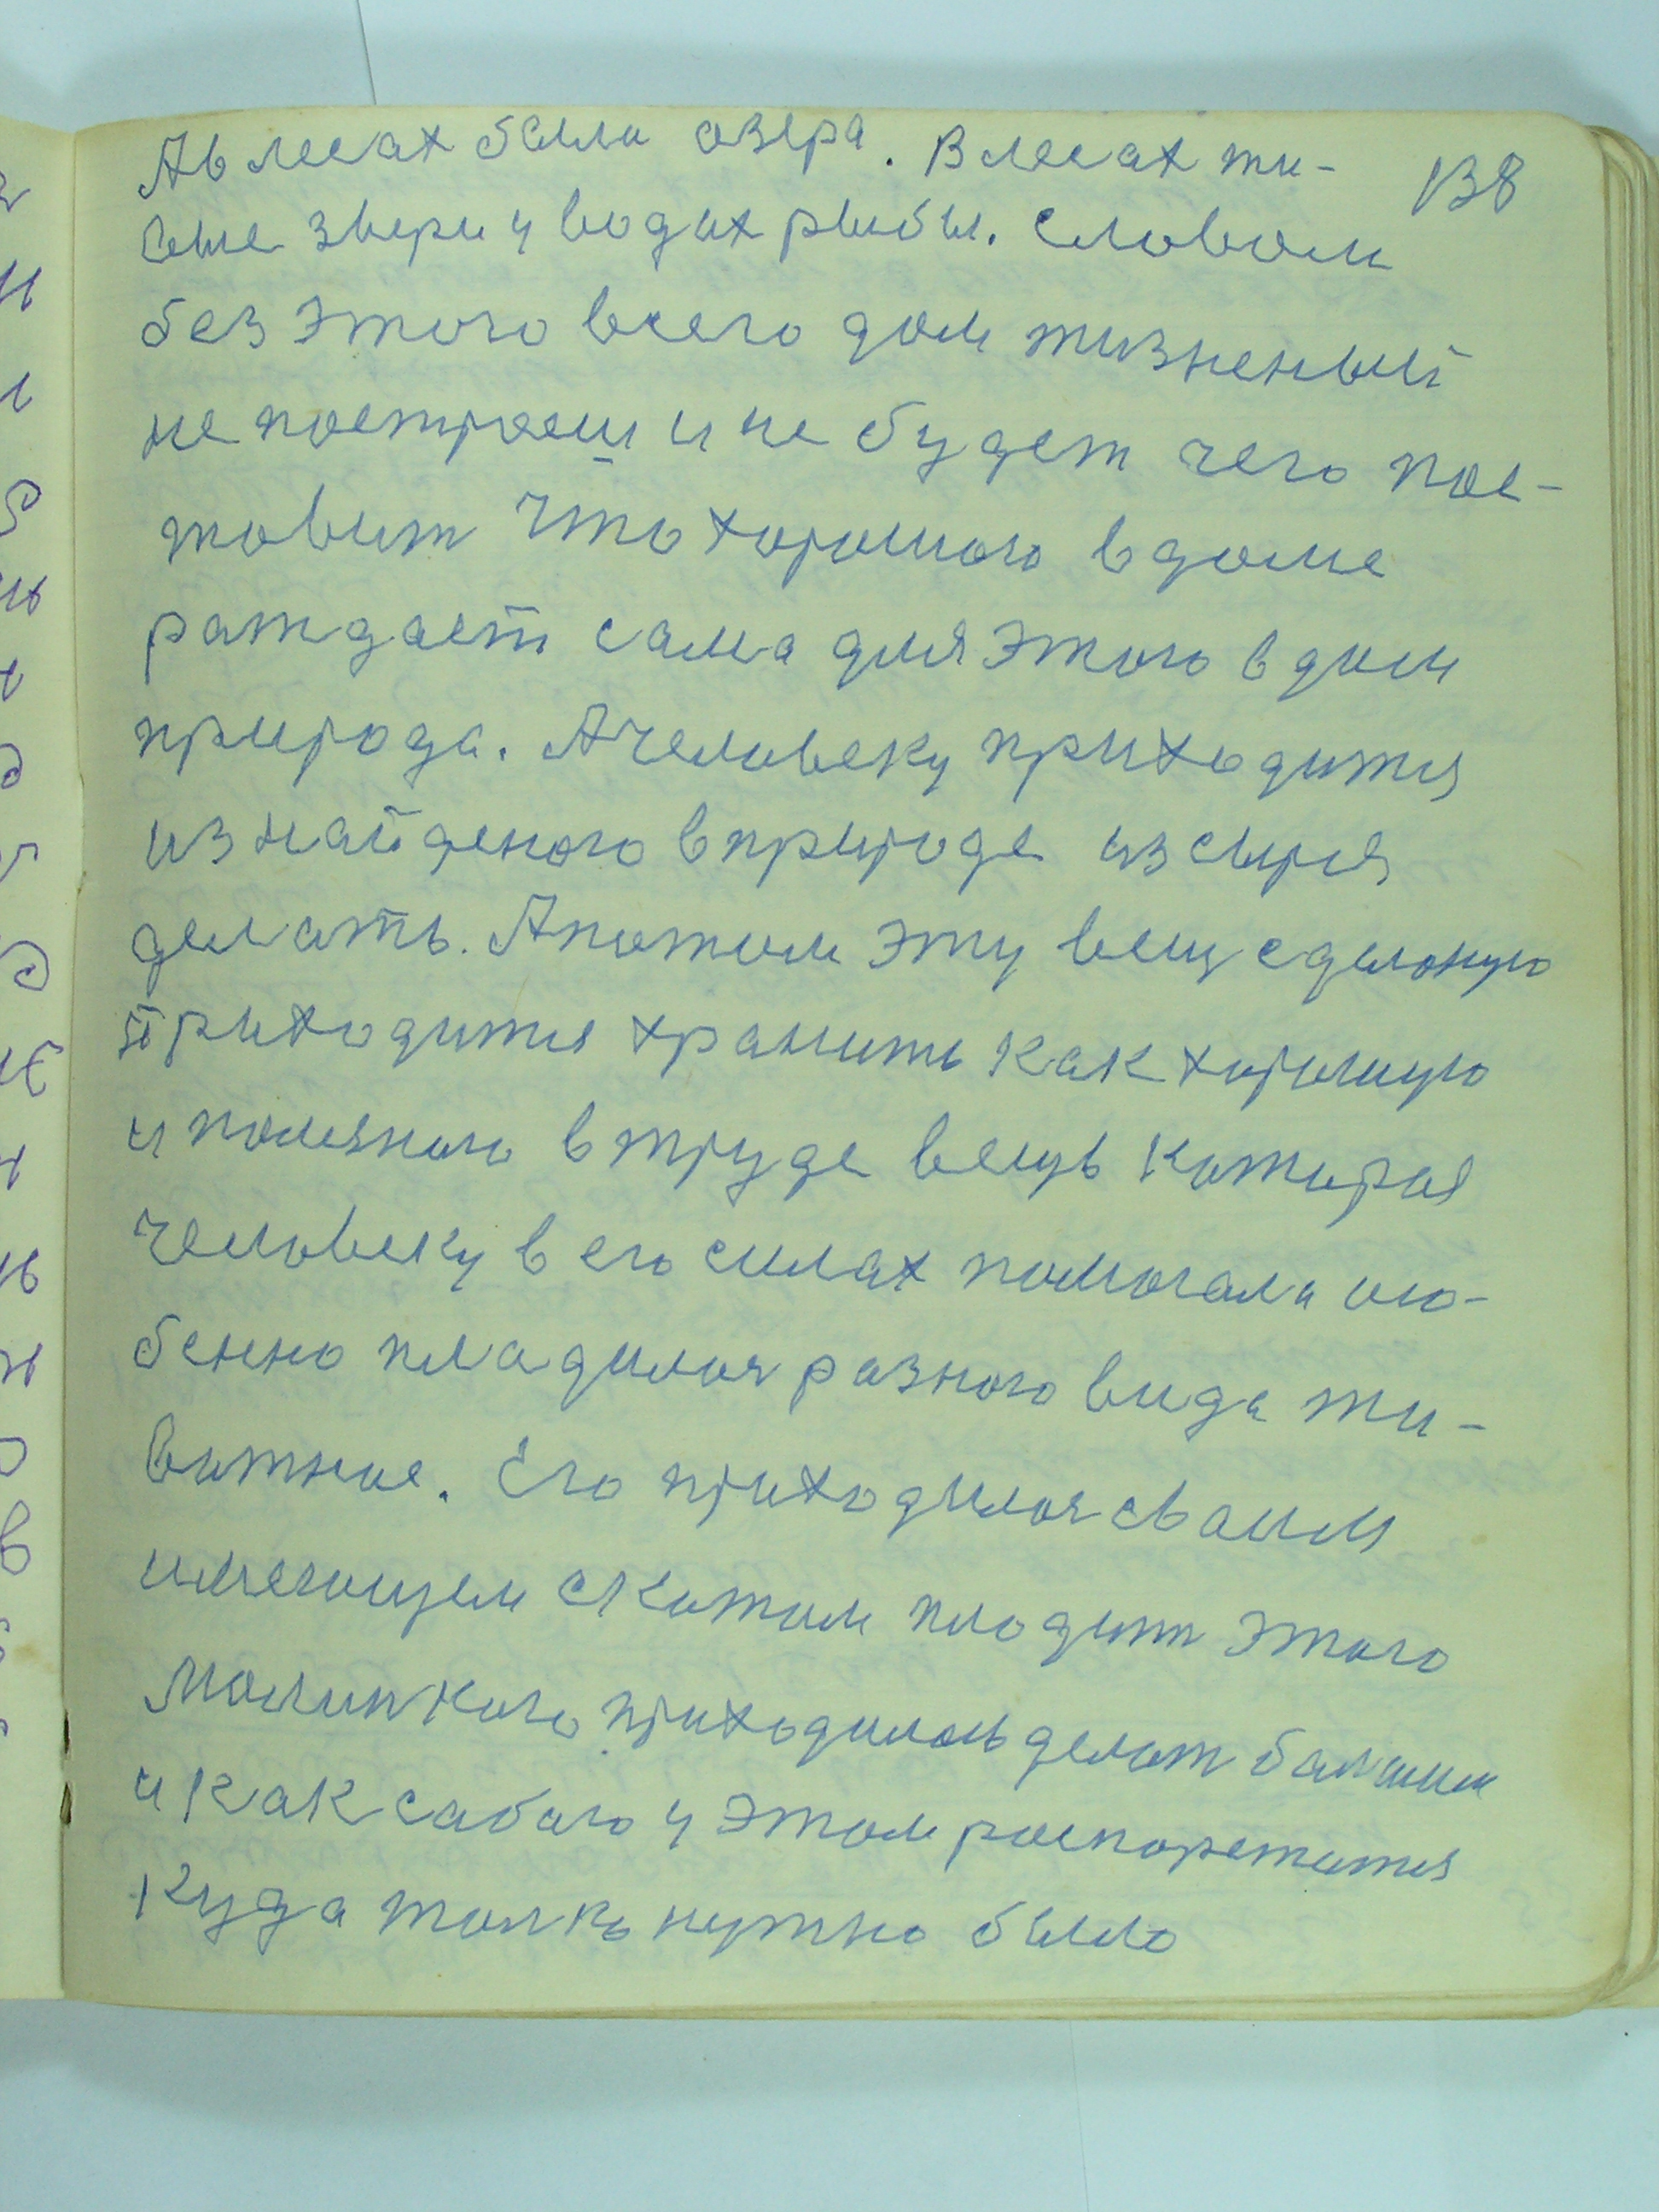 138
А в лесах были озера. В лесах жи-
выe звери у водах рыбы. Словом
без этого всего дом жизненый
не построеш и не будет чего пос-
товит что хорошого в доме
раждает сама для этого в дом
природа. А человеку приходится
из найденого в природе из сырья
делать. А потом эту вещ сделоную
приходится хранить как хорошую
и полезного в труде вещь которая
человеку в его силах помогала осо-
бенно пладилося разного вида жи-
вотное. Его приходилося сваим
имеющем скотом плодит этого
малинкого приходилось делат балшим
и как сабаго у этом распорежатия
куда толко нужно было